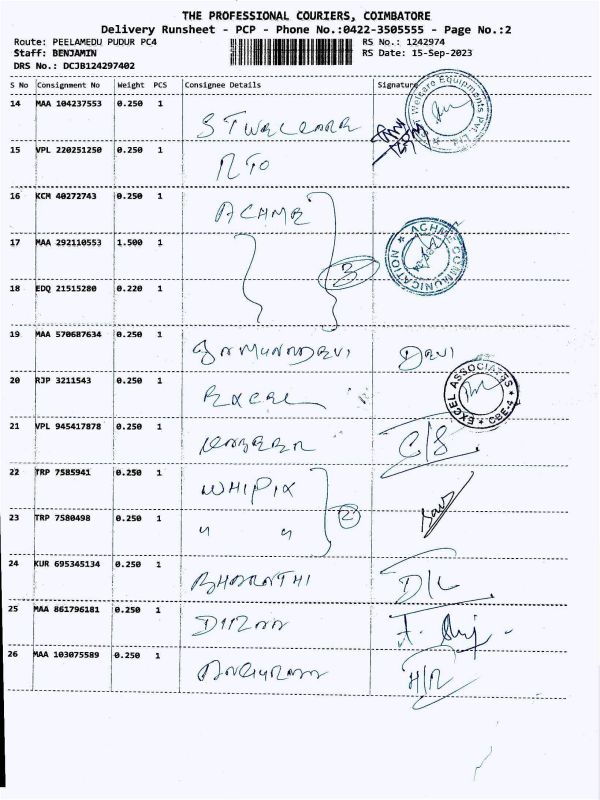 THE PROFESSIONAL COURIERS, COIMBATORE
Delivery Runsheet - PCP - Phone No.:0422-3505555 - Page No.:2
Route: PEELAMEDU PUDUR PC4 RS No.: 1242974
Staff: BENJAMIN RS Date: 15-Sep-2023
DRS No.: DCJB124297402
S No Consignment No Weight PCS Consignee Details Signature
14 MAA 104237553 0.250 1
Welcare Equipments Pvt. Ltd
15 VPL 220251250 0.250 1 RTO
16 KCM 40272743 0.250 1 ACHME
17 MAA 292110553 1.500 1 3
ACHME COMMUNICATION
18 EDQ 21515280 0.220 1
19 MAA 570687634 0.250 1 DEVI
20 RJP 3211543 0.250 1 EXCEL
EXCEL ASSOCIATES CBE-4
21 VPL 945417878 0.250 1 C/S
22 TRP 7585941 0.250 1 WHIPIX
23 TRP 7580498 0.250 1 " " 2
24 KUR 695345134 0.250 1 BHARATHI D/L
25 MAA 861796181 0.250 1
26 MAA 103075589 0.250 1 H/R